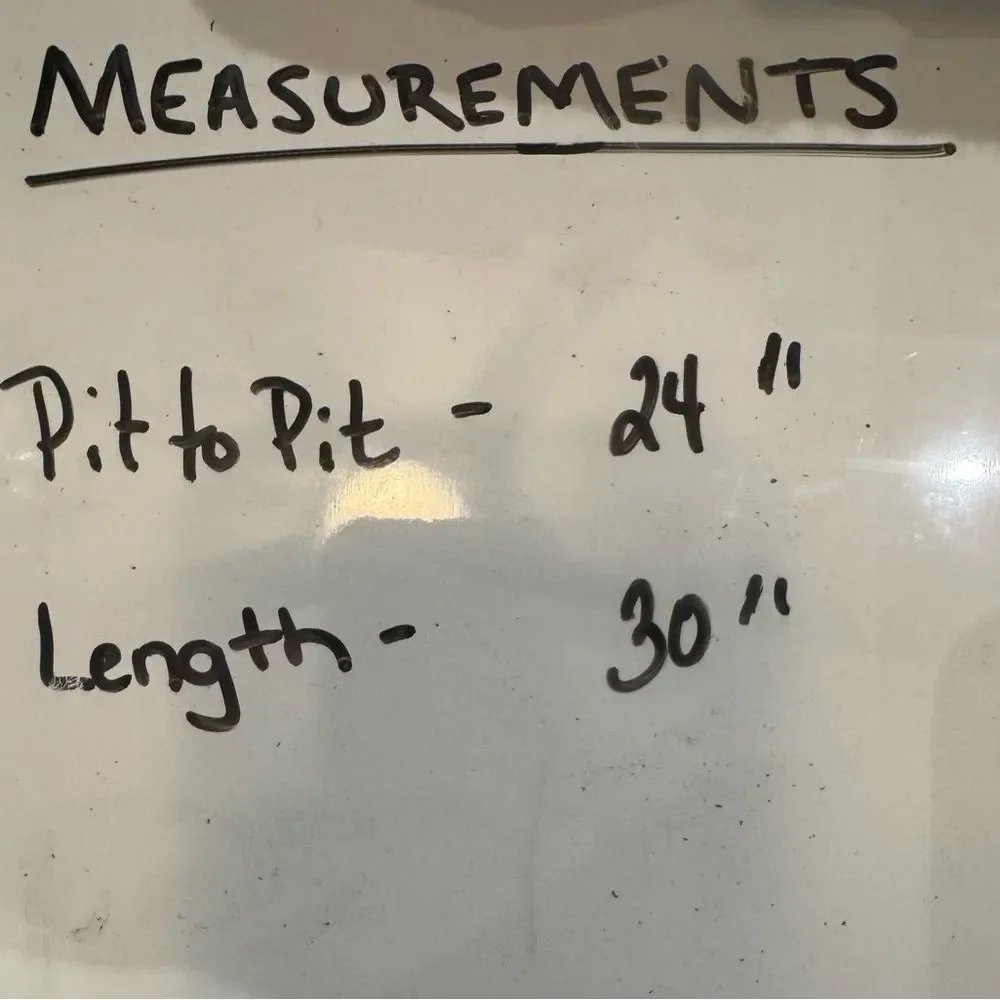 MEASUREMENTS
Pit to Pit - 24"
Length - 30"